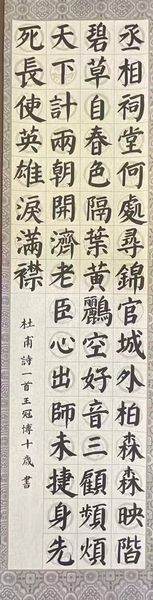 丞相祠堂何處尋錦官城外柏森森映階
碧草自春色隔葉黃鸝空好音三顧頻煩
天下計兩朝開濟老臣心出師未捷身先
死長使英雄淚滿襟
杜甫詩一首王冠博十歲書